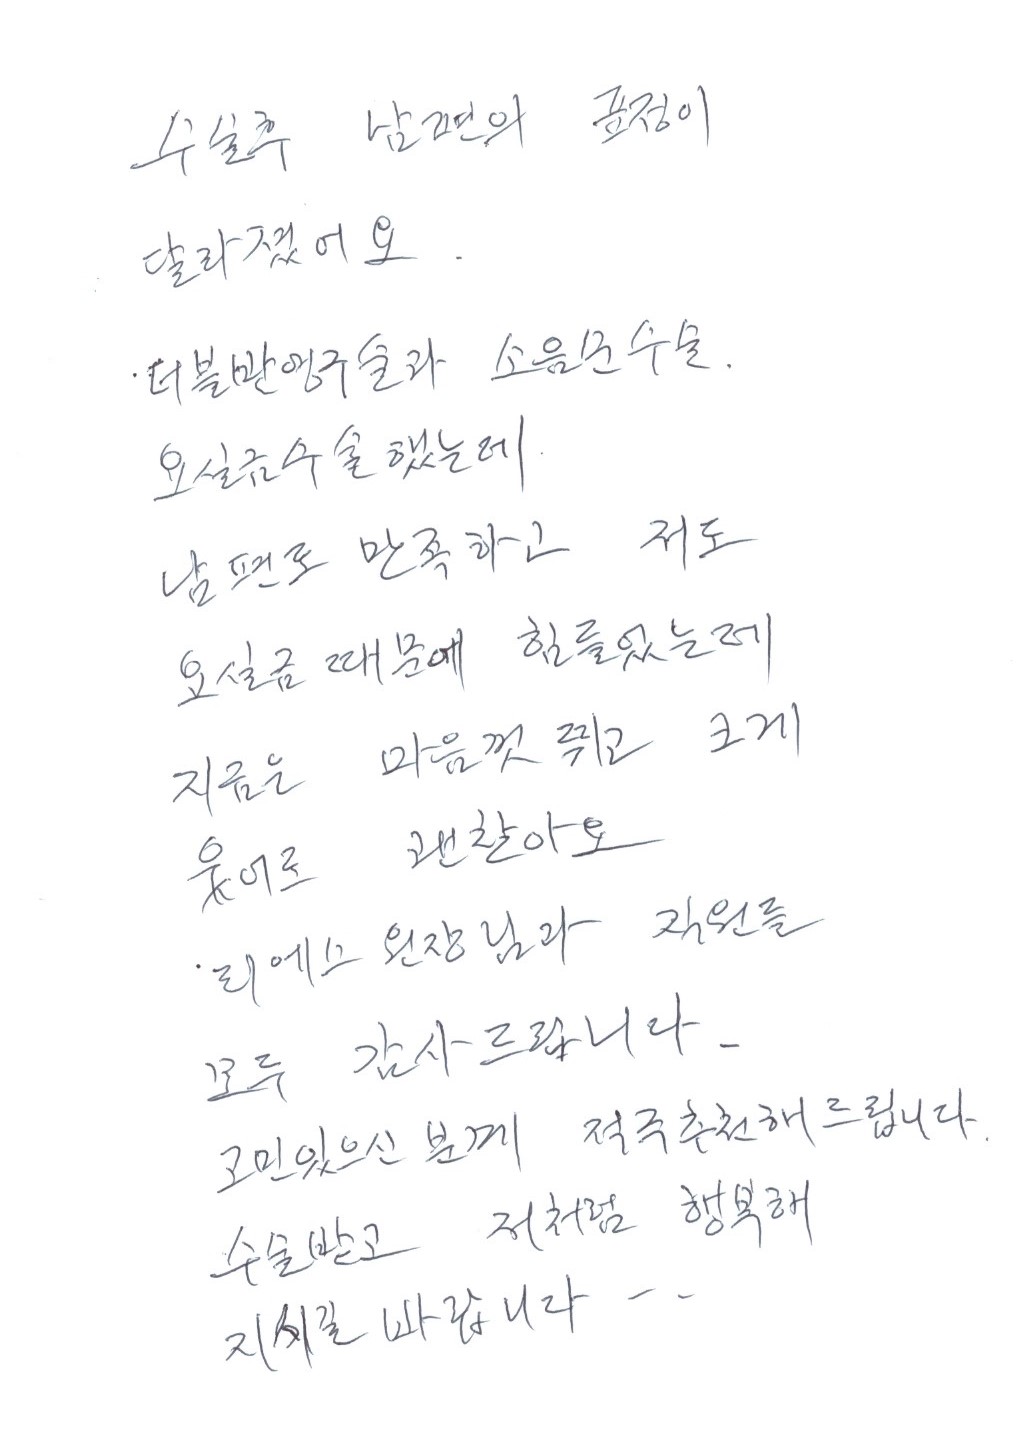 수술후 남편의 표정이
달라졌어요.
·더블반영구술과 소음순수술.
요실금수술했는데.
남편도 만족하고 저도
요실금때문에 힘들었는데
지금은 마음껏 뛰고 크게
웃어도 괜찮아요
·리에스원장님과 직원들
모두 감사드립니다_
고민있으신 분께 적극추천해드립니다.
수술받고 저처럼 행복해
지시길 바랍니다--